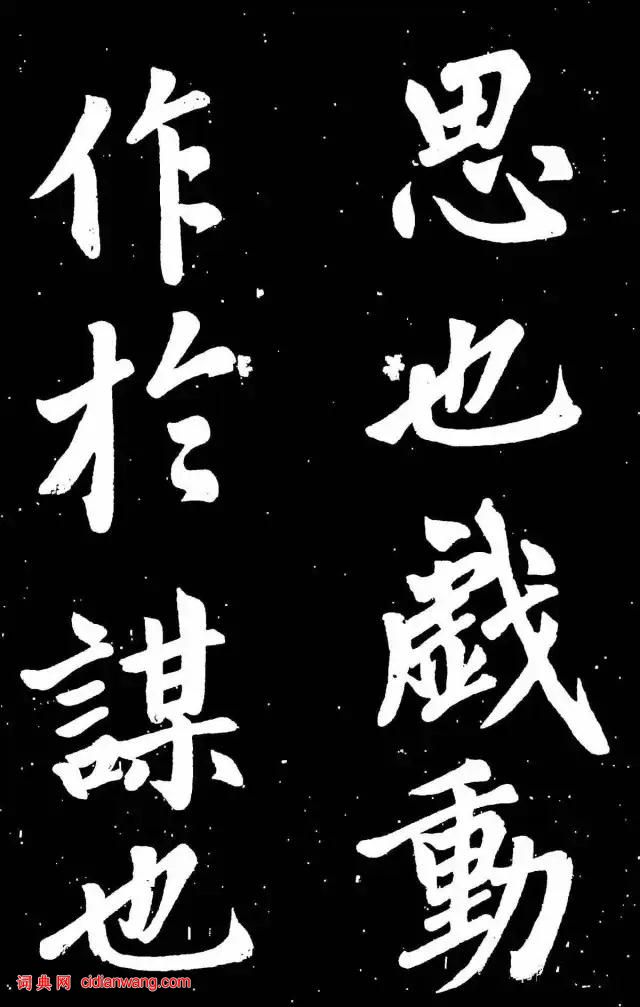 思也戯動
作於謀也
词典网 cidianwang.com